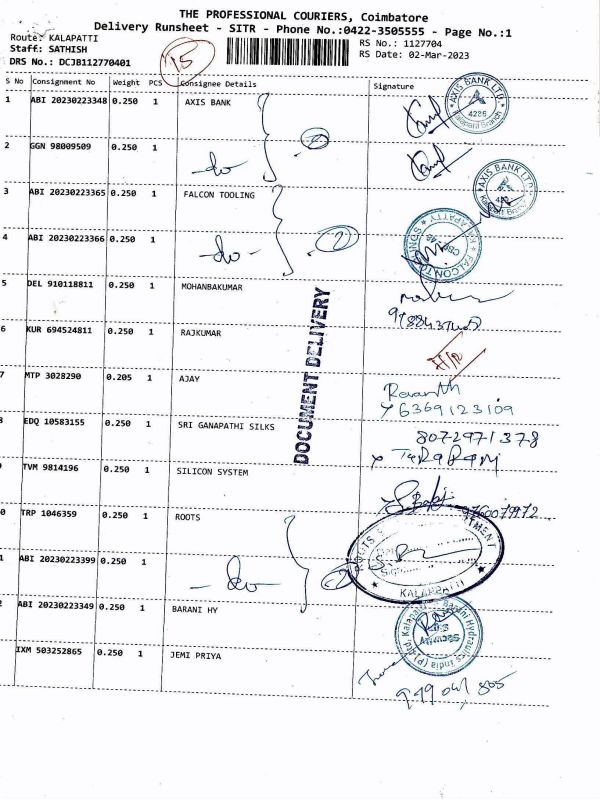 THE PROFESSIONAL COURIERS, Coimbatore
Delivery Runsheet - SITR - Phone No.:0422-3505555 - Page No.:1
Route: KALAPATTI
Staff: SATHISH
DRS No.: DCJB112770401
15
RS No.: 1127704
RS Date: 02-Mar-2023
S No Consignment No Weight PCS Consignee Details Signature
1 ABI 20230223348 0.250 1 AXIS BANK
AXIS BANK LTD. 4236 Kalapatti Branch
2 GGN 98009509 0.250 1 -do- 2
AXIS BANK LTD. Kalapatti Branch
3 ABI 20230223365 0.250 1 FALCON TOOLING
4 ABI 20230223366 0.250 1 -do- 2
5 DEL 910118811 0.250 1 MOHANBAKUMAR
6 KUR 694524811 0.250 1 RAJKUMAR
DOCUMENT DELIVERY
7 MTP 3028290 0.205 1 AJAY
6369123109
EDQ 10583155 0.250 1 SRI GANAPATHI SILKS
8072971378
TVM 9814196 0.250 1 SILICON SYSTEM
0 TRP 1046359 0.250 1 ROOTS
ROOTS
KALAPATTI
1 ABI 20230223399 0.250 1 -do- 2
2 ABI 20230223349 0.250 1 BARANI HY
Barani Hydraulics India (P) Ltd. Kalapatti
Security
IXM 503252865 0.250 1 JEMI PRIYA